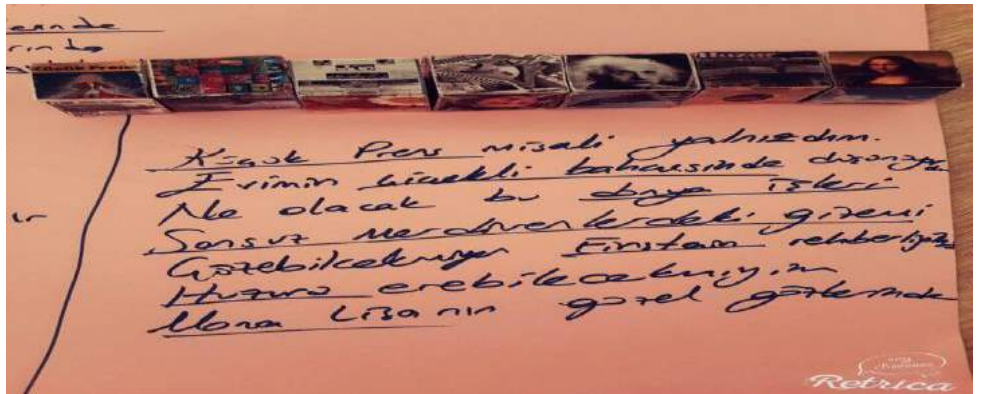 erinde
rinde
Küçük Prens
Küçük Prens misali yalnızdım.
Evimin çiçekli bahçesinde düşünüyorum
Ne olacak bu dünya işleri
Sonsuz merdivenlerdeki gizemi
Çözebilecekmiyim Einstain rehberliğinde
Huzura erebilecekmiyim
Mona Lisa nın güzel gözlerinde
Retrica